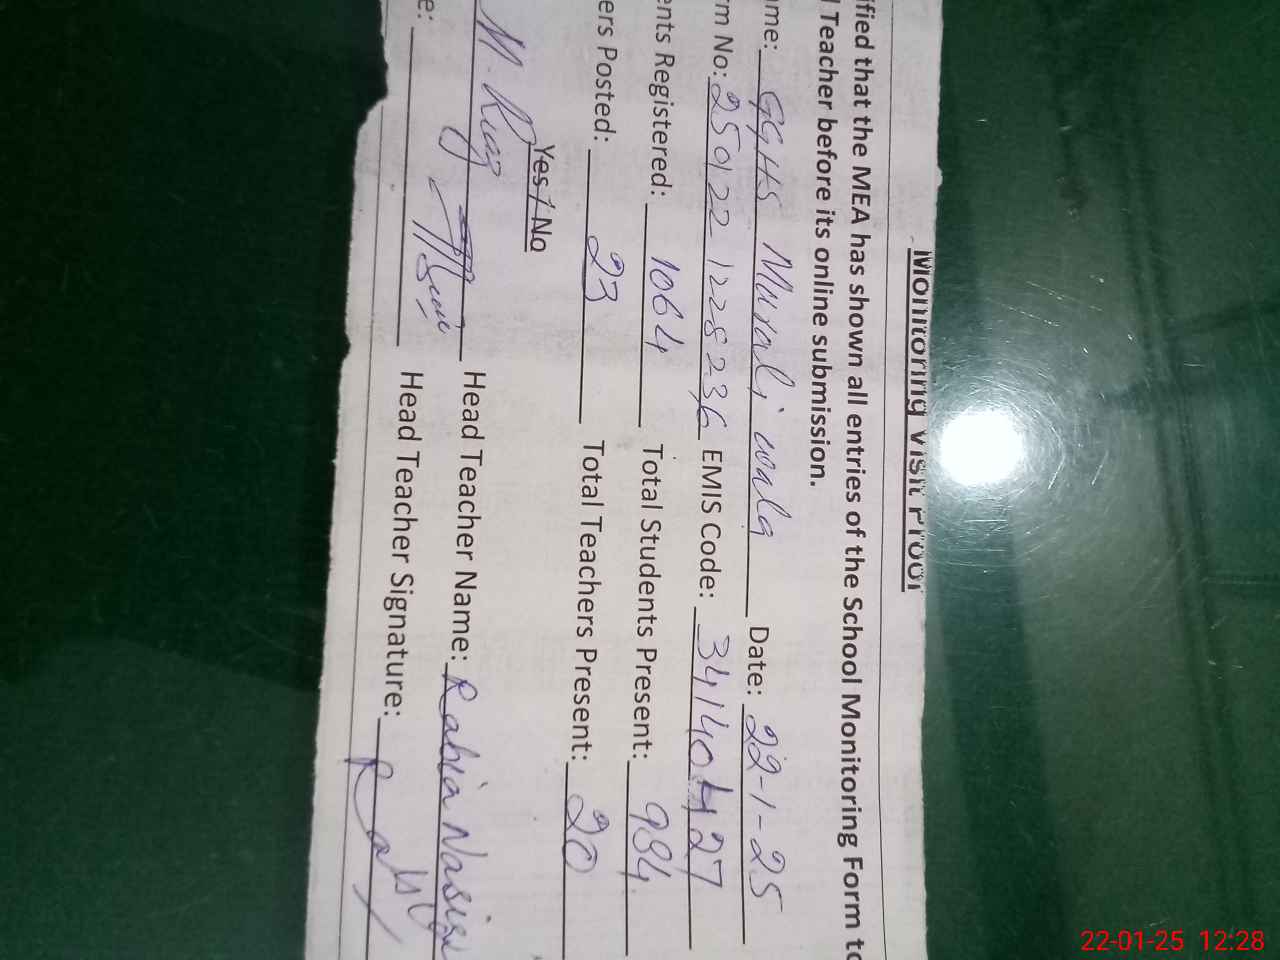 Monitoring Visit Proof
ified that the MEA has shown all entries of the School Monitoring Form to
Teacher before its online submission.
ame: GGHS Murali wala Date: 22-1-25
rm No: 250122 1228236 EMIS Code: 34140427
ents Registered: 1064 Total Students Present: 984
ers Posted: 23 Total Teachers Present: 20
Yes / No
M. Riaz Head Teacher Name: Rabia Nasir
e: Head Teacher Signature:
22-01-25 12:28